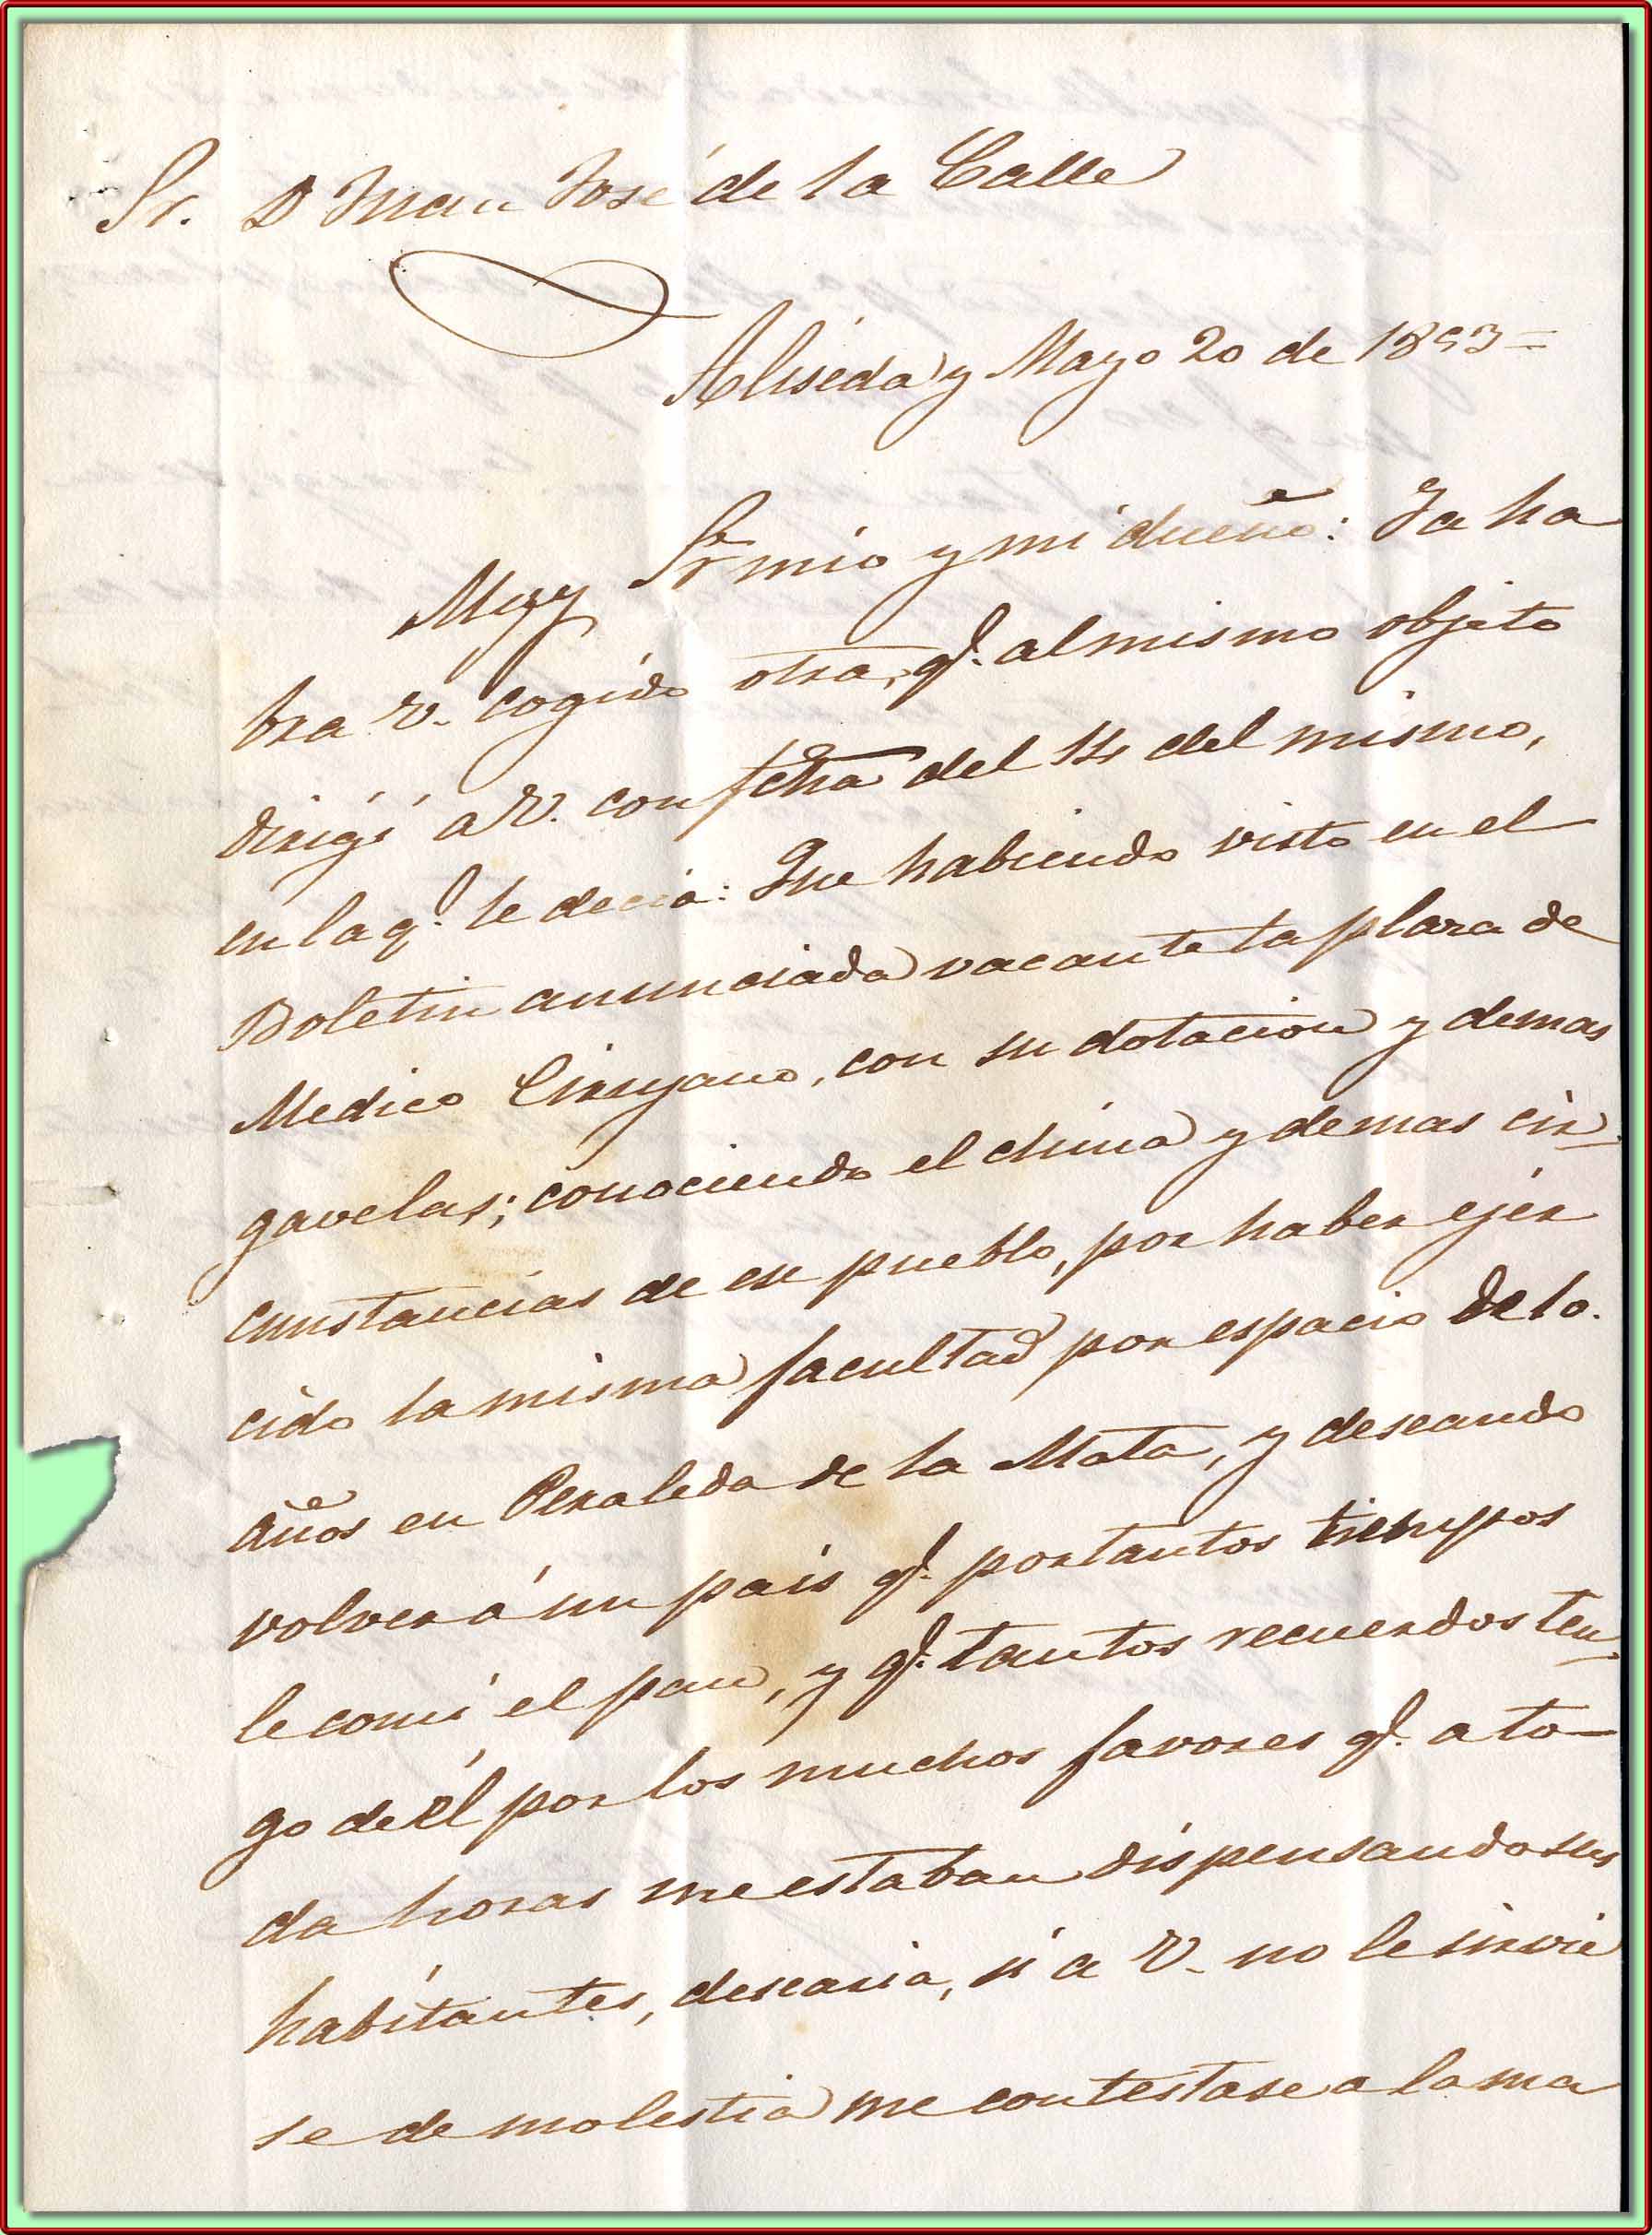 Sr. D Juan José de la Calle
Aliseda y Mayo 20 de 1853=
Muy Sr mio y mi dueño: Ya ha
bra V. cogido otra, q.e al mismo objeto
dirigí a V. con fcha del 14 del mismo,
en la q.e le decia: Que habiendo visto en el
Boletin anunciada vacante la plaza de
Medico Cirujano, con su dotacion y demas
gavelas; conociendo el clima y demas cir-
cunstancias de ese pueblo, por haber ejer
cido la misma facultad por espacio de 10.
años en Peraleda de la Mata, y deseando
volver á un pais q.e por tantos tiempos
le comí el pan, y q.e tantos recuerdos ten-
go de él por los muchos favores q.e a to-
da horas me estaban dispensando sus
habitantes, desearia, si a V. no le sirvie
se de molestia me contestase a la ma